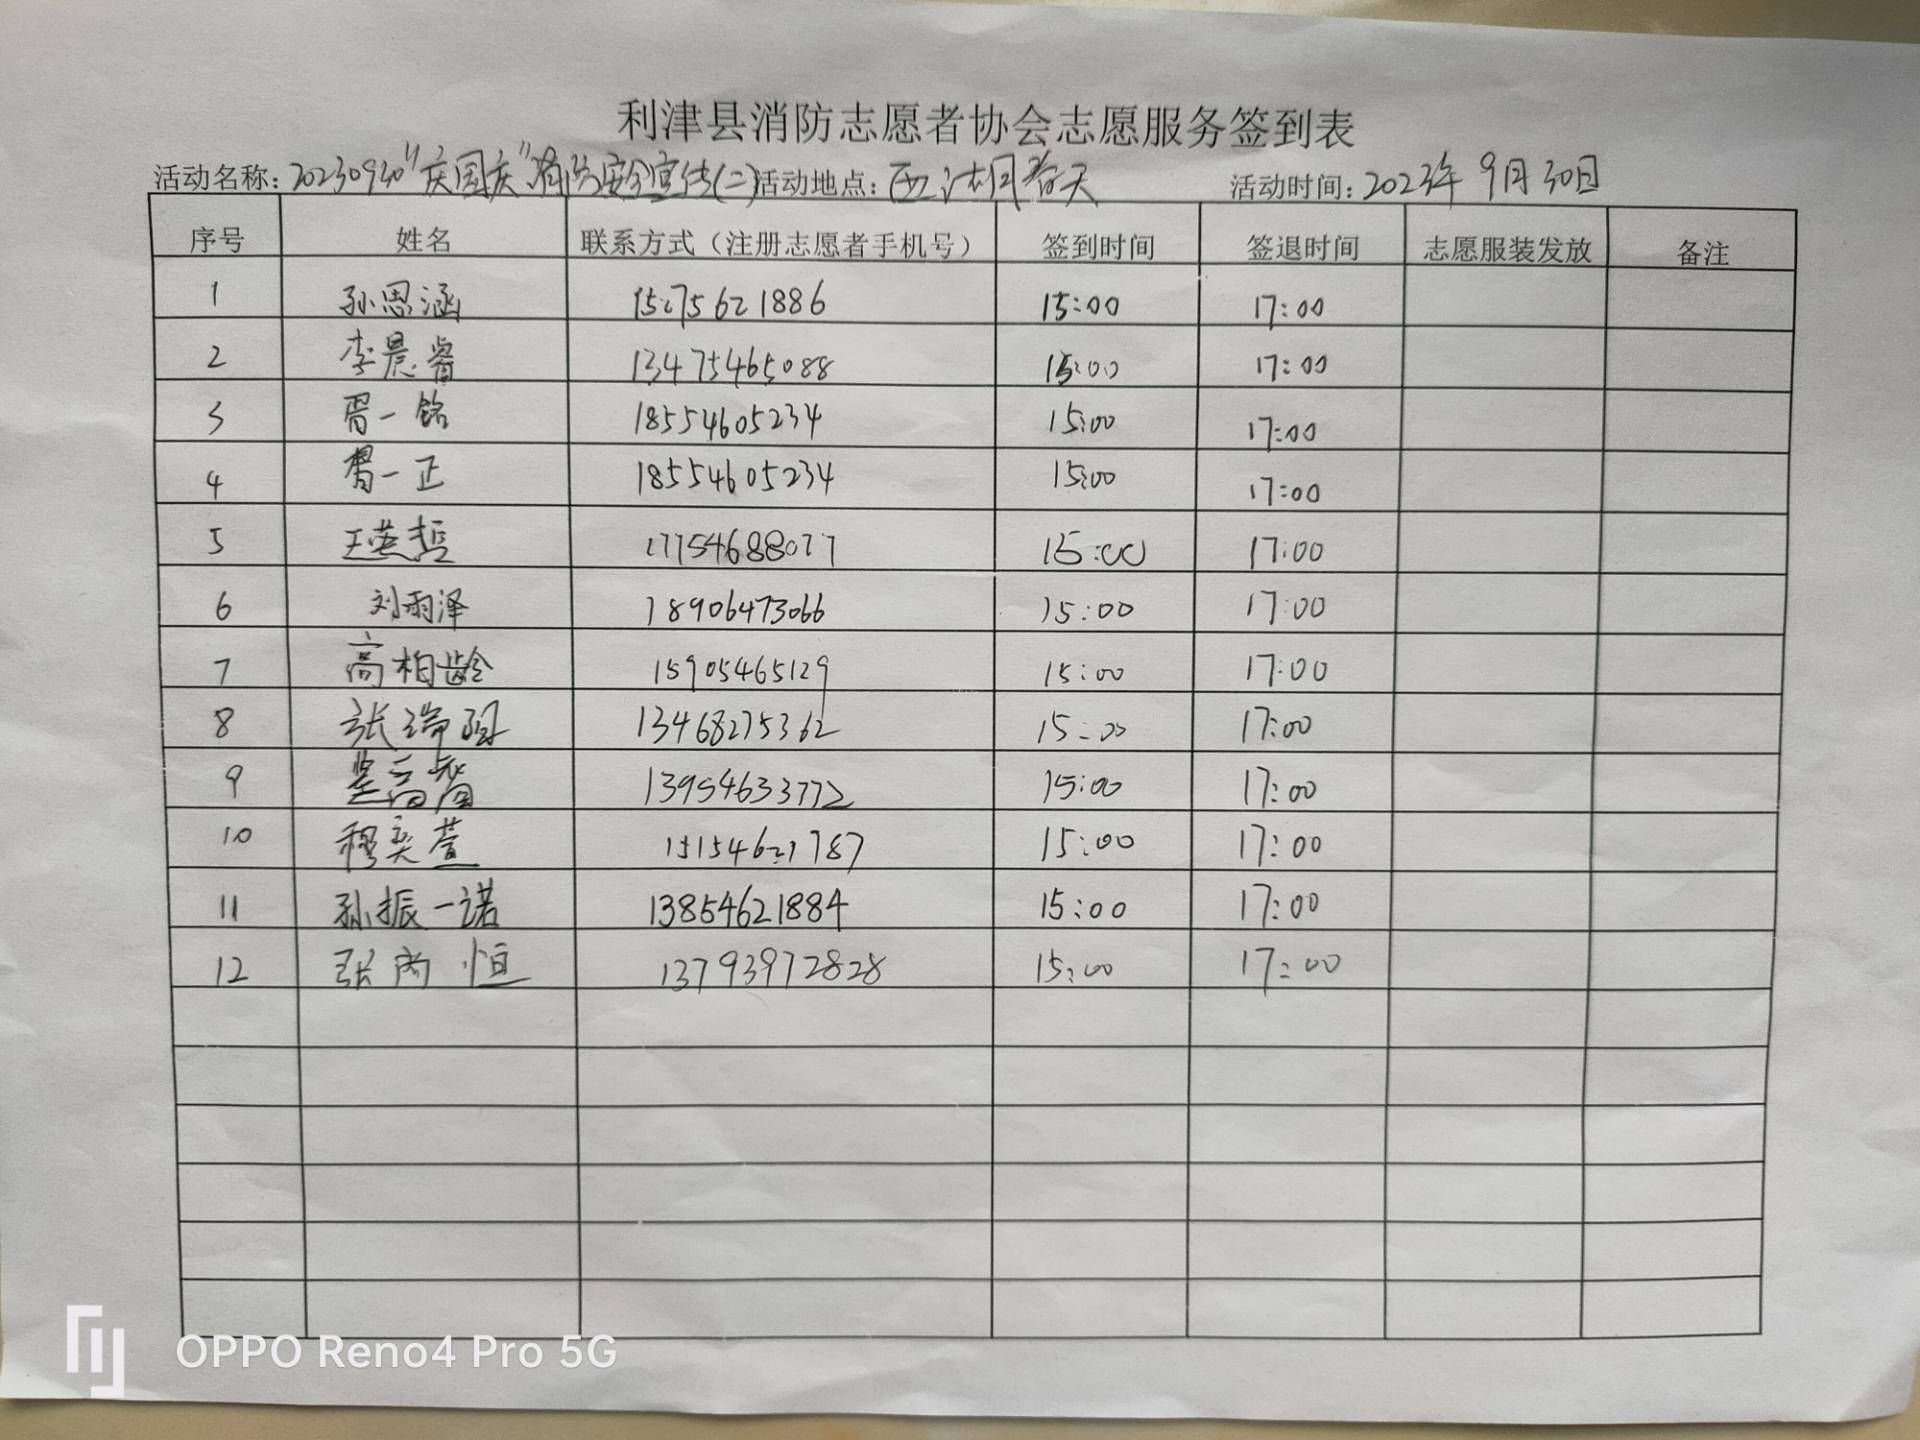 利津县消防志愿者协会志愿服务签到表
活动名称：20230930“庆国庆”消防安全宣传(二) 活动地点：西法国春天 活动时间：2023年9月30日
序号 姓名 联系方式（注册志愿者手机号） 签到时间 签退时间 志愿服装发放 备注
1 孙思涵 15275621886 15:00 17:00
2 李晨睿 13475465088 15:00 17:00
3 胥一铭 18554605234 15:00 17:00
4 胥一正 18554605234 15:00 17:00
5 王英哲 17754688077 15:00 17:00
6 刘雨泽 18906473066 15:00 17:00
7 高柏龄 15905465129 15:00 17:00
8 张瑞 13468275362 15:00 17:00
9 13954633772 15:00 17:00
10 穆奕萱 15154621787 15:00 17:00
11 孙振一诺 13854621884 15:00 17:00
12 张 恒 13793972828 15:00 17:00
OPPO Reno4 Pro 5G